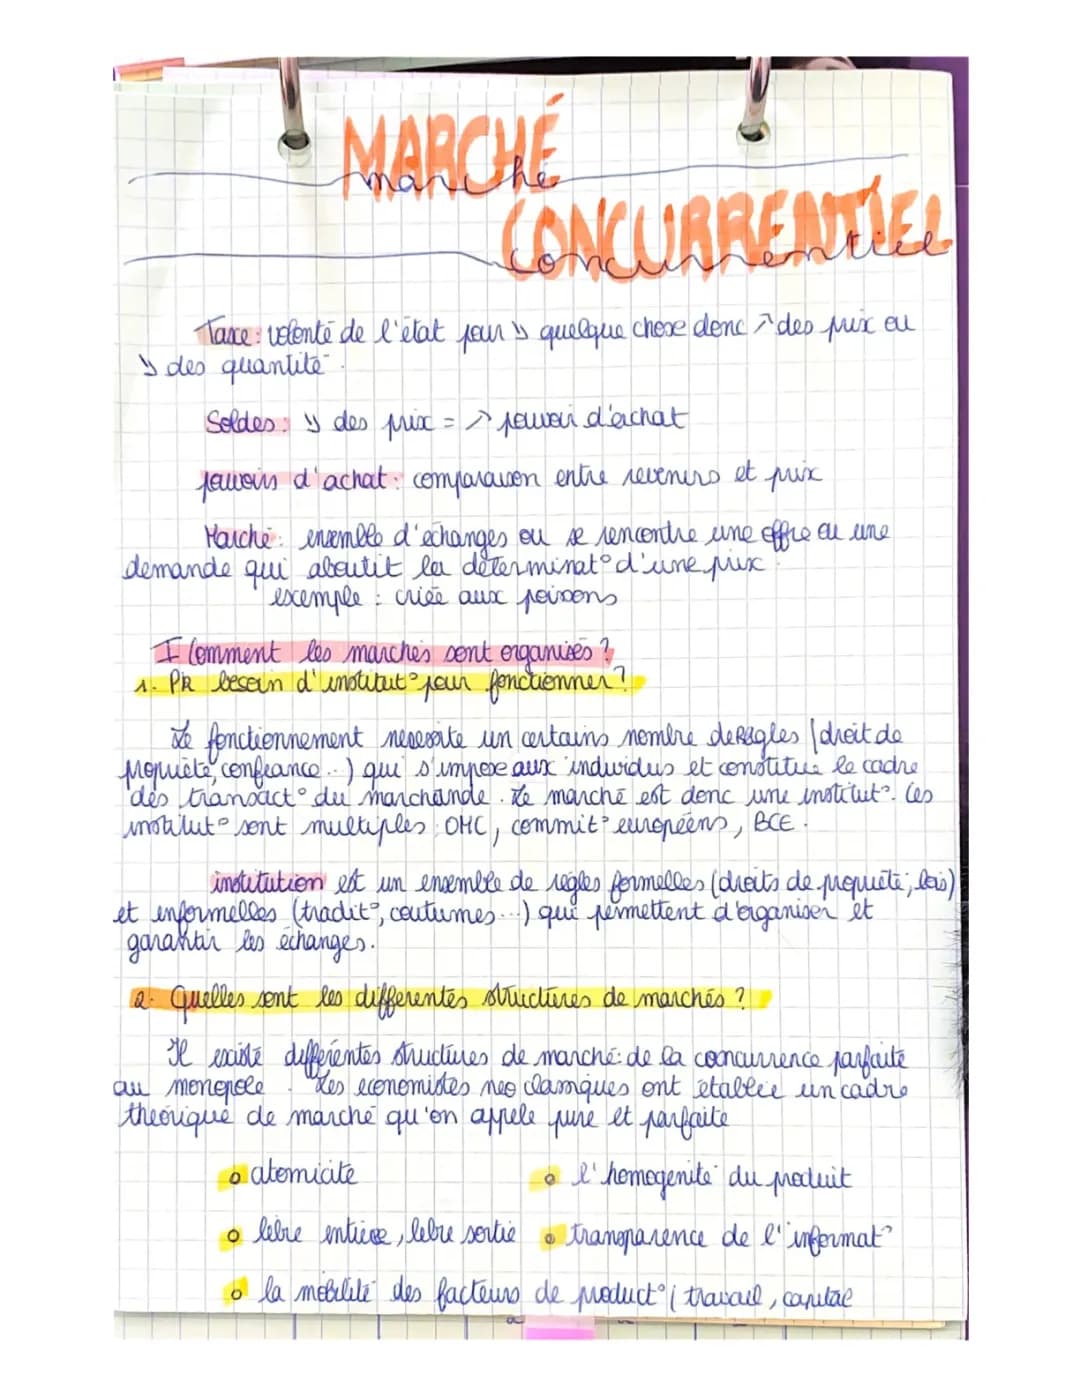 MARCHÉ
marché
CONCURRENTIEL
concurrentiel
Taxe : volonté de l'état pour ↘ quelque chose donc ↗ des prix ou
↘ des quantité.
Soldes : ↘ des prix = ↗ pouvoir d'achat
pouvoirs d'achat : comparaison entre revenus et prix
Marché : ensemble d'échanges ou se rencontre une offre ou une
demande qui aboutit la déterminat° d'une prix.
exemple : criée aux poissons
I Comment les marchés sont organisés ?
1. Pk besoin d'institut° pour fonctionner ?
Le fonctionnement nécessite un certains nombre de Règles (droit de
propriété, confiance...) qui s'impose aux individus et constitue le cadre
des transact° du marchande. Le marché est donc une institut°. Ces
institut° sont multiples OMC, commit° européens, BCE.
institution est un ensemble de règles formelles (droits de propriété; lois)
et informelles (tradit°, coutumes...) qui permettent d'organiser et
garantir les échanges.
2. Quelles sont les differentes structures de marchés ?
Il existe différentes structures de marché : de la concurrence parfaite
au monopole. Les economistes neo classiques ont établie un cadre
théorique de marché qu'on appele pure et parfaite
o atomicité
o l'homogenité du produit
o libre entrée, libre sortie
o transparence de l'informat°
o la mobilité des facteurs de product° ( travail, capital